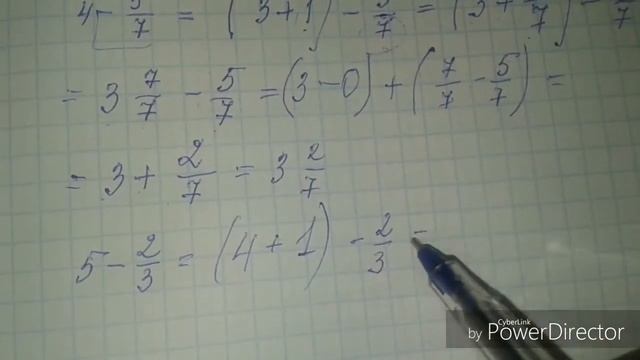 4 - 5/7 = (3+1) - 5/7 = (3+ 7/7) -
= 3 7/7 - 5/7 = (3-0) + (7/7 - 5/7) =
= 3 + 2/7 = 3 2/7
5 - 2/3 = (4+1) - 2/3 =
by CyberLink PowerDirector